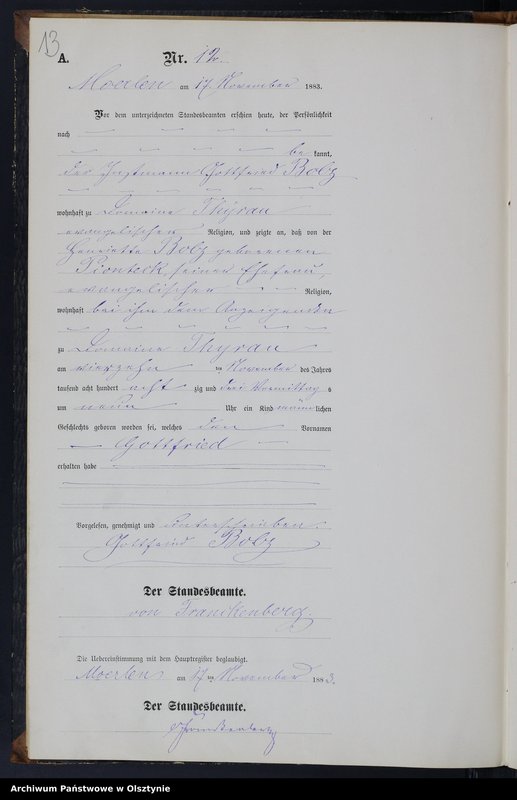 13
A. Nr. 12.
Moerlen am 17. November 1883.
Vor dem unterzeichneten Standesbeamten erschien heute, der Persönlichkeit
nach
bekannt,
der Instmann Gottfried Bolz
wohnhaft zu Domaine Thyrau
evangelischer Religion, und zeigte an, daß von der
Henriette Bolz geborenen
Piontek, seiner Ehefrau,
evangelischer Religion,
wohnhaft bei ihm dem Anzeigenden
zu Domaine Thyrau
am vierzehn ten November des Jahres
tausend acht hundert acht zig und drei Vormittag s
um neun Uhr ein Kind männlichen
Geschlechts geboren worden sei, welches den Vornamen
Gottfried
erhalten habe
Vorgelesen, genehmigt und unterschrieben.
Gottfried Bolz
Der Standesbeamte.
von Franckenberg.
Die Uebereinstimmung mit dem Hauptregister beglaubigt.
Moerlen am 17 ten November 1883.
Der Standesbeamte.
Franckenberg
Archiwum Państwowe w Olsztynie